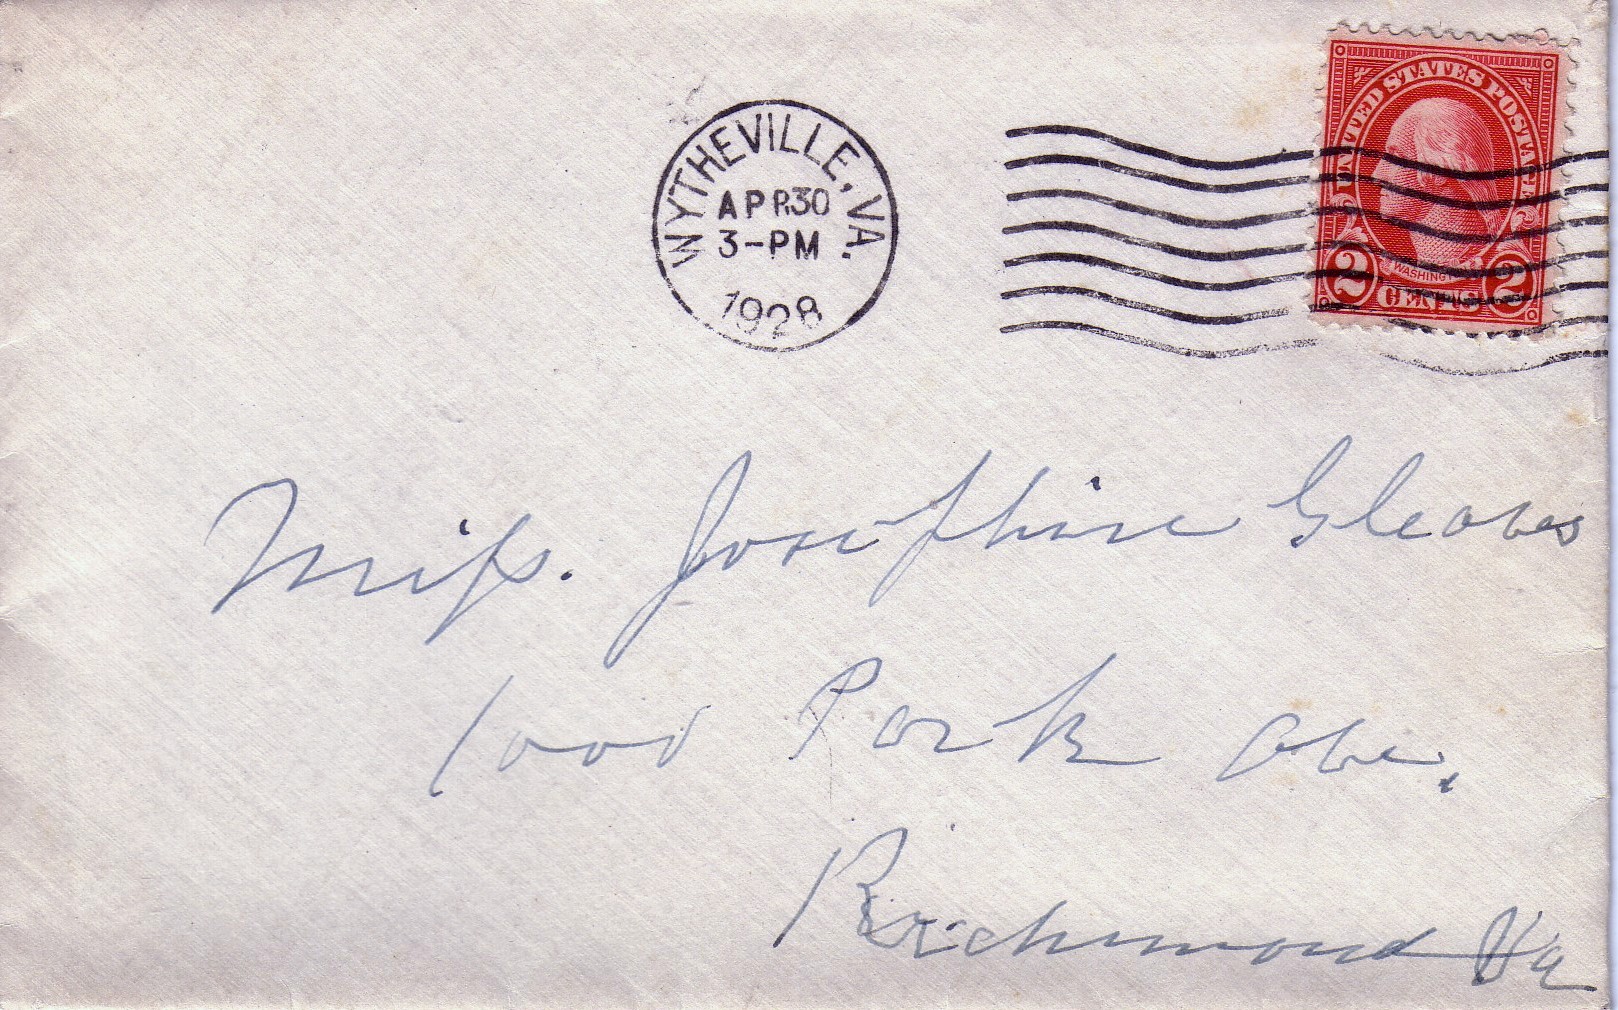 WYTHEVILLE, VA.
APR 30
3-PM
1928
UNITED STATES POSTAGE
WASHINGTON
2 CENTS 2
Miss. Josephine Gleaves
1000 Park Ave.
Richmond Va